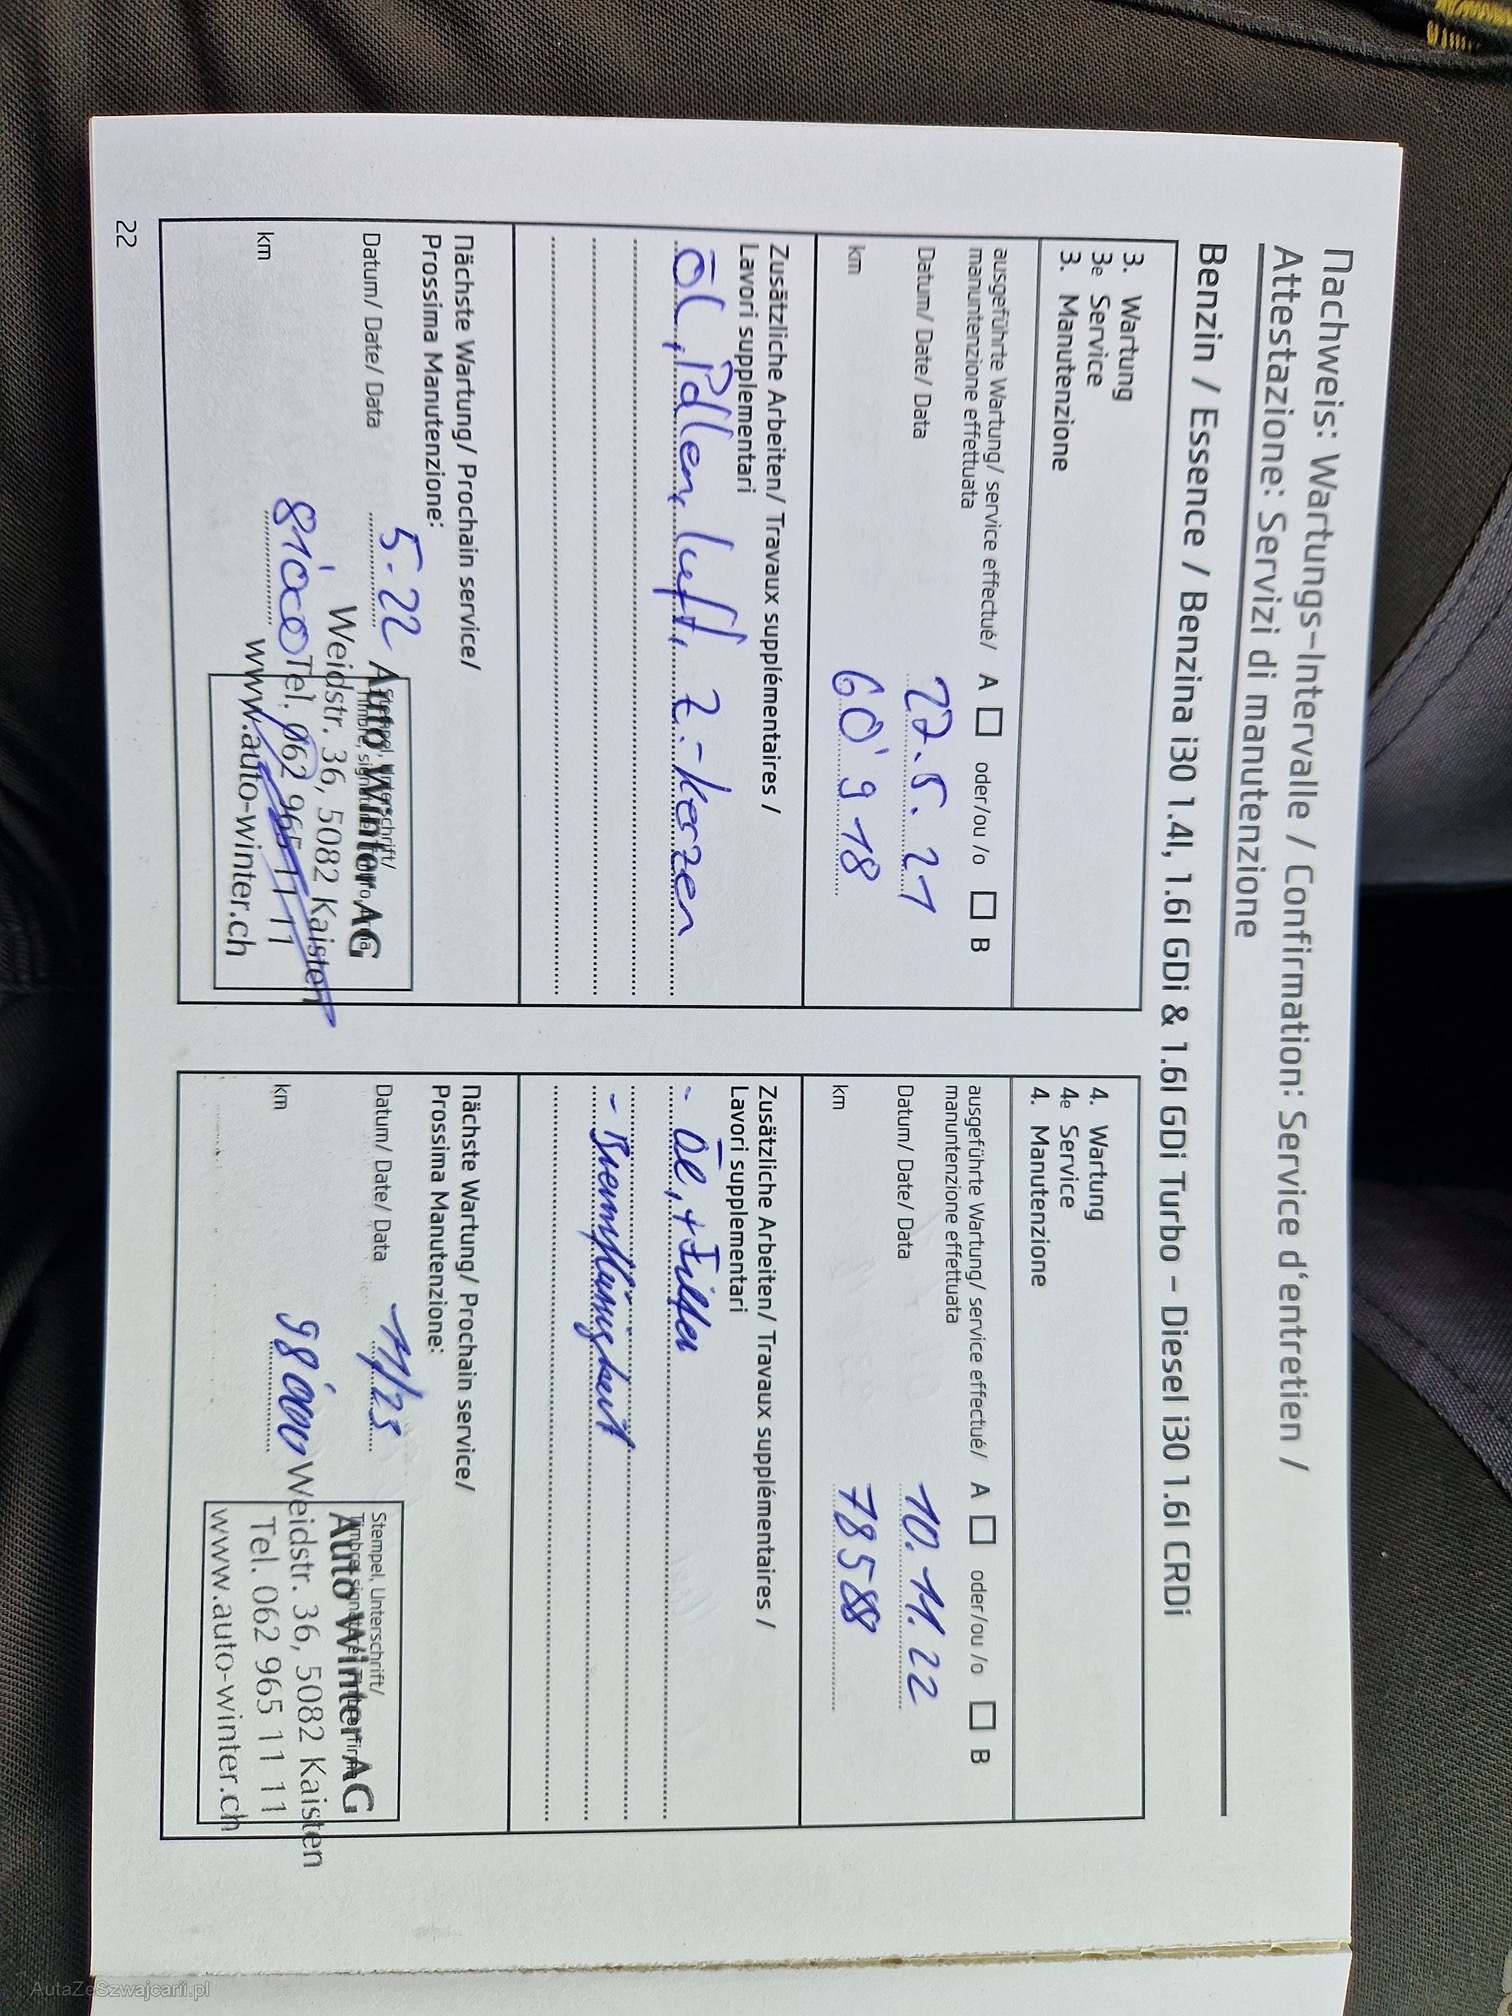 Nachweis: Wartungs-Intervalle / Confirmation: Service d'entretien /
Attestazione: Servizi di manutenzione
Benzin / Essence / Benzina i30 1.4l, 1.6l GDi & 1.6l GDi Turbo – Diesel i30 1.6l CRDi
3. Wartung
3e Service
3. Manutenzione
ausgeführte Wartung/ service effectué/ A oder/ou /o B
manuntenzione effettuata
Datum/ Date/ Data 27.5.21
km 60'918
Zusätzliche Arbeiten/ Travaux supplémentaires /
Lavori supplementari
Öl, Pollen, Luft, Z.-Kerzen
Nächste Wartung/ Prochain service/
Prossima Manutenzione:
Datum/ Date/ Data 5.22
km 81'000
Auto Winter AG
Weidstr. 36, 5082 Kaisten
Tel. 062 965 11 11
www.auto-winter.ch
4. Wartung
4e Service
4. Manutenzione
ausgeführte Wartung/ service effectué/ A oder/ou /o B
manuntenzione effettuata
Datum/ Date/ Data 10.11.22
km 78588
Zusätzliche Arbeiten/ Travaux supplémentaires /
Lavori supplementari
- Öl, + Filter
- Bremsflüssigkeit
Nächste Wartung/ Prochain service/
Prossima Manutenzione:
Datum/ Date/ Data 11/23
km 98'000
Stempel, Unterschrift/
Auto Winter AG
Weidstr. 36, 5082 Kaisten
Tel. 062 965 11 11
www.auto-winter.ch
22
AutaZeSzwajcarii.pl